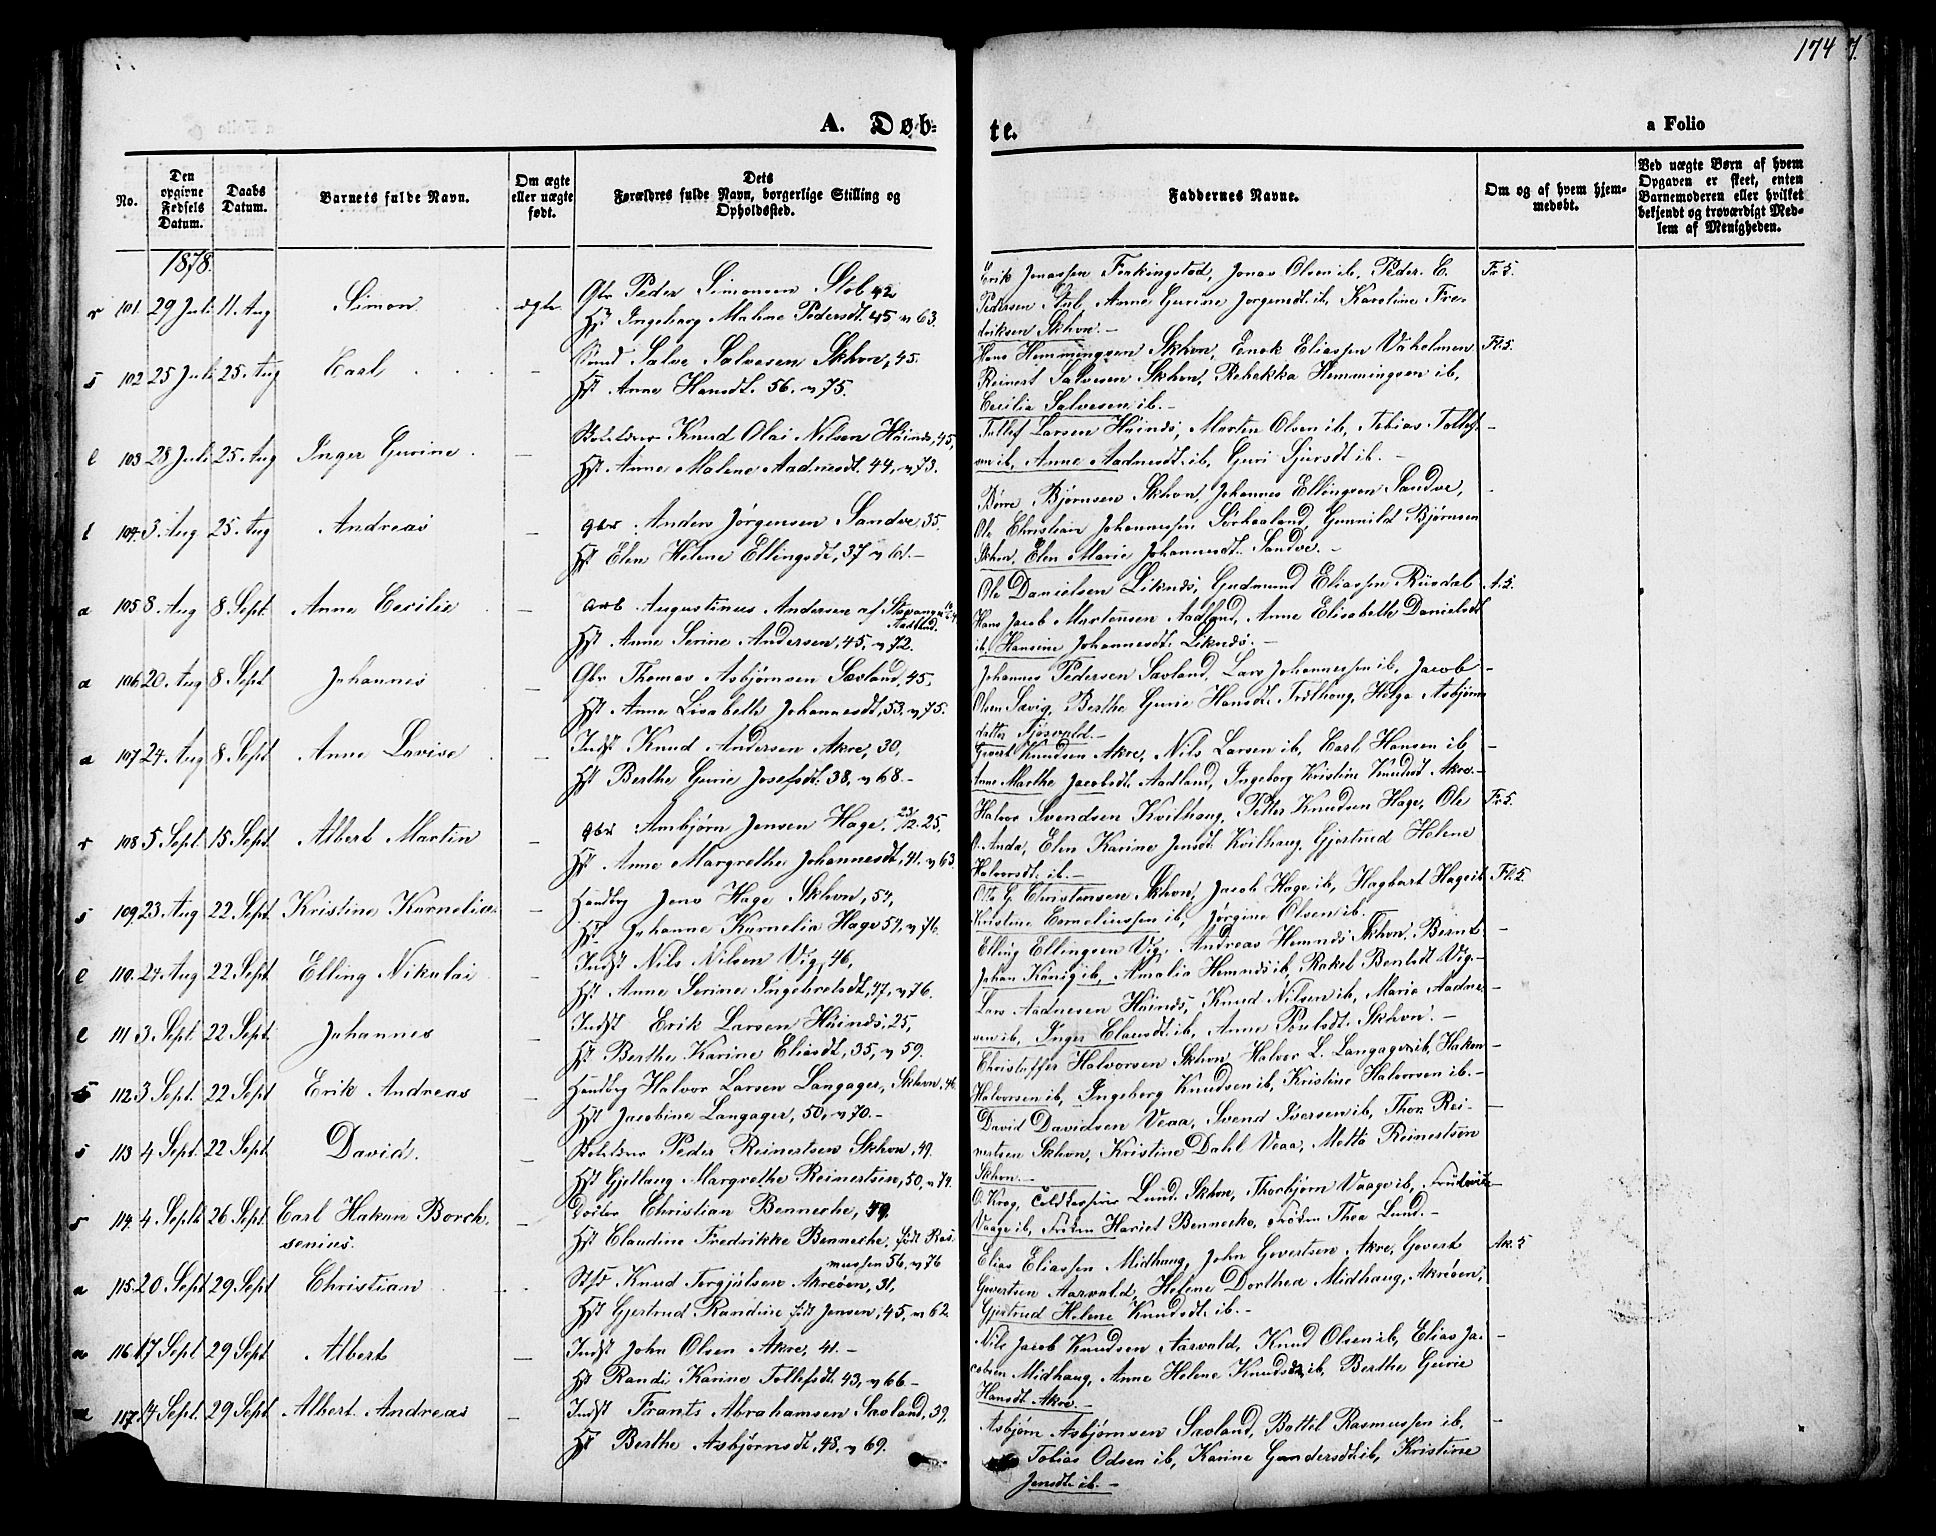 174 7.
A. Døb-
te.
a Folio
No.
Den opgivne Fødsels Datum.
Daabs Datum.
Barnets fulde Navn.
Om ægte eller uægte født.
Dets Forældres fulde Navn, borgerlige Stilling og Opholdssted.
Faddernes Navne.
Om og af hvem hjemmedøbt.
Ved uægte Børn af hvem Opgaven er skeet, enten Barnemoderen eller hvilket bekjendt og troværdigt Medlem af Menigheden.
1878.
r 101. 29 Juli 11. Aug Simon ægte Gbr Peder Simonsen Stol 42
Hst Ingeborg Malene Pedersdt. 45 v 63.
Erik Jonassen Ferkingstad, Jonas Olsen ib, Peder E. Fr 5.
Pedersen Stol Anne Gurine Jørgensdt. ib, Karoline Fre-
driksen Skhvn. -
s 102 25 Juli 25. Aug Carl - Salve Salvesen Skhvn, 45.
Hst Anne Hansdt. 56. v 75.
Hans Hemmingsen Skhvn, Enok Eliassen Vaholmen Fl. 5.
Reinert Salvesen Skhvn, Rebekka Hemmingsen ib,
Cecilie Salvesen ib. -
l 103 28 Juli 25. Aug Inger Gurine - Knud Olai Nilsen 45,
Hst Anne Malene Aadnesdt. 44, v 73.
Tollef Larsen Morten Olsen ib, Tobias Tollef- -
sen ib, Anne Aadnesdt. ib, Guri Sjursdt ib. -
l 104. 3. Aug 25. Aug Andreas - gbr Anders Jørgensen Sandve, 35.
Hst Elen Helene Ellingsdt, 37 v 61. -
Børre Bjørnsen Skhvn, Johannes Ellingsen Sandve, -
Ole Christian Johannessen Sørhaaland, Gunnild Bjørnsen
Skhvn, Elen Marie Johannesdt. Sandve. -
a 105 8. Aug 8 Sept. Anne Cecilie - arb Augustinus Andersen af Stavanger
Aadland.
Hst Anne Serine Andersen, 45, v 72.
Ole Danielsen Liknes, Gudmund Eliassen Riisdal A. 5.
Hans Jacob Mortensen Aadland, Anne Elisabeth Danielsdt
ib, Hansine Johannesdt. Liknes. -
a 106 20. Aug 8 Sept Johannes - Gbr Thomas Asbjørnsen Sæland, 45,
Hst Anne Lisabeth Johannesdt, 53, v 75.
Johannes Pedersen Sæland, Lars Johannessen ib, Jacob -
Olsen Sævig, Berthe Gurie Hansdt. Helga Asbjørns-
datter
a 107 24. Aug 8 Sept. Anne Lovise - Indst Knud Andersen Akre, 30,
Hst Berthe Gurie Josefsdt. 38, v 68. -
Govert Knudsen Akre, Nils Larsen ib, Carl Hansen ib, -
Anne Marthe Jacobsdt. Aadland, Ingeborg Kristine Knudsdt Akre. -
r 108 5 Sept. 15 Sept. Albert Martin - gbr Ambjørn Jensen Hage, 23/12. 25,
Hst Anne Margrethe Johannesdt, 41. v 63.
Halvor Svendsen Kvilhaug, Petter Knudsen Hage, Ole Fr 5.
O. Anda, Elen Karine Jensdt Kvilhaug, Gjertrud Helene
Halvorsdt. ib. -
s 109. 23 Aug 22 Sept. Kristine Kornelia - Handbg Jens Hage Skhvn, 54,
Hst Johanne Kornelia Hage 54, v 76.
Otto G Christensen Skhvn, Jacob Hage ib, Hagbart Hage ib Fl. 5.
Kristine Corneliussen ib, Jørgine Olsen ib.
l 110. 24. Aug 22 Sept. Elling Nikolai - Indst Nils Nilsen Vig, 46,
Hst Anne Serine Ingebretsdt, 47, v 76.
Elling Ellingsen Vig, Andreas Hemnes Skhvn, Bernt -
Johan Kønig ib, Amalia Hemnes ib, Rakel Bentsdt Vig. -
l 111 3 Sept. 22 Sept. Johannes - Indst Erik Larsen 25,
Hst Berthe Karine Eliasdt, 35, v 59.
Lars Aadnesen Knud Nilsen ib, Marie Aadne-
sen ib, Inger Clausdt. ib, Anne Poulsdt. Skhvn. -
s 112 3 Sept. 22 Sept. Erik Andreas - Handbg Halvor Larsen Langager, Skhvn, 46.
Hst Jacobine Langager, 50, v 70. -
Christoffer Halvorsen Skhvn, Halvor L. Langager ib, Haken -
Halvorsen ib, Ingeborg Knudsen ib, Kristine Halvorsen ib. -
s 113 4 Sept. 22 Sept David. - Peder Reinertsen Skhvn, 49.
Hst Gjellaug Margrethe Reinertsen, 50, v 74.
David Davidsen Veaa, Svend Iversen ib, Thor Rei- -
nertsen Skhvn, Kristine Dahl Veaa, Metta Reinertsen
Skhvn. -
s 114. 4. Septb 26 Sept. Carl Hakon Borch- - Christian Benneche, 49.
senius. Hst Claudine Fredrikke Bennecke, født Ras-
mussen 56, v 76
O. Krog, Lund Skhvn, Thorbjørn Vaage ib, -
Vaage ib, Frøken Hariet Bennecke, Frøken Thea Lund. -
a 115. 20 Sept 29 Sept Christian - Knud Torgjulsen Akreøen, 31,
Hst Gjertrud Randine født Jensen, 45, v 62
Elias Eliassen Midhaug, John Govertsen Akre, Govert Ak. 5
Govertsen Aarvold, Helene Dorthea Midhaug, Akreøen,
Gjertrud Helene Knudsdt. ib. -
a 116 17 Sept 29 Sept Albert - Indst John Olsen Akre, 41. -
Hst Randi Karine Tollefsdt. 43, v 66 -
Nils Jacob Knudsen Aarvold, Knud Olsen ib, Elias Ja- -
cobsen Midhaug, Anne Helene Knudsdt ib, Berthe Gurie
Hansdt. Akre. -
117. 4 Sept. 29 Sept. Albert Andreas - Indst Frants Abrahamsen Sæland, 39.
Hst Berthe Asbjørnsdt, 48, v 69.
Asbjørn Asbjørnsen Sæland, Bottel Rasmussen ib, -
Tobias Odsen ib, Karine Gundersdt. ib, Kristine
Jensdt. ib. -